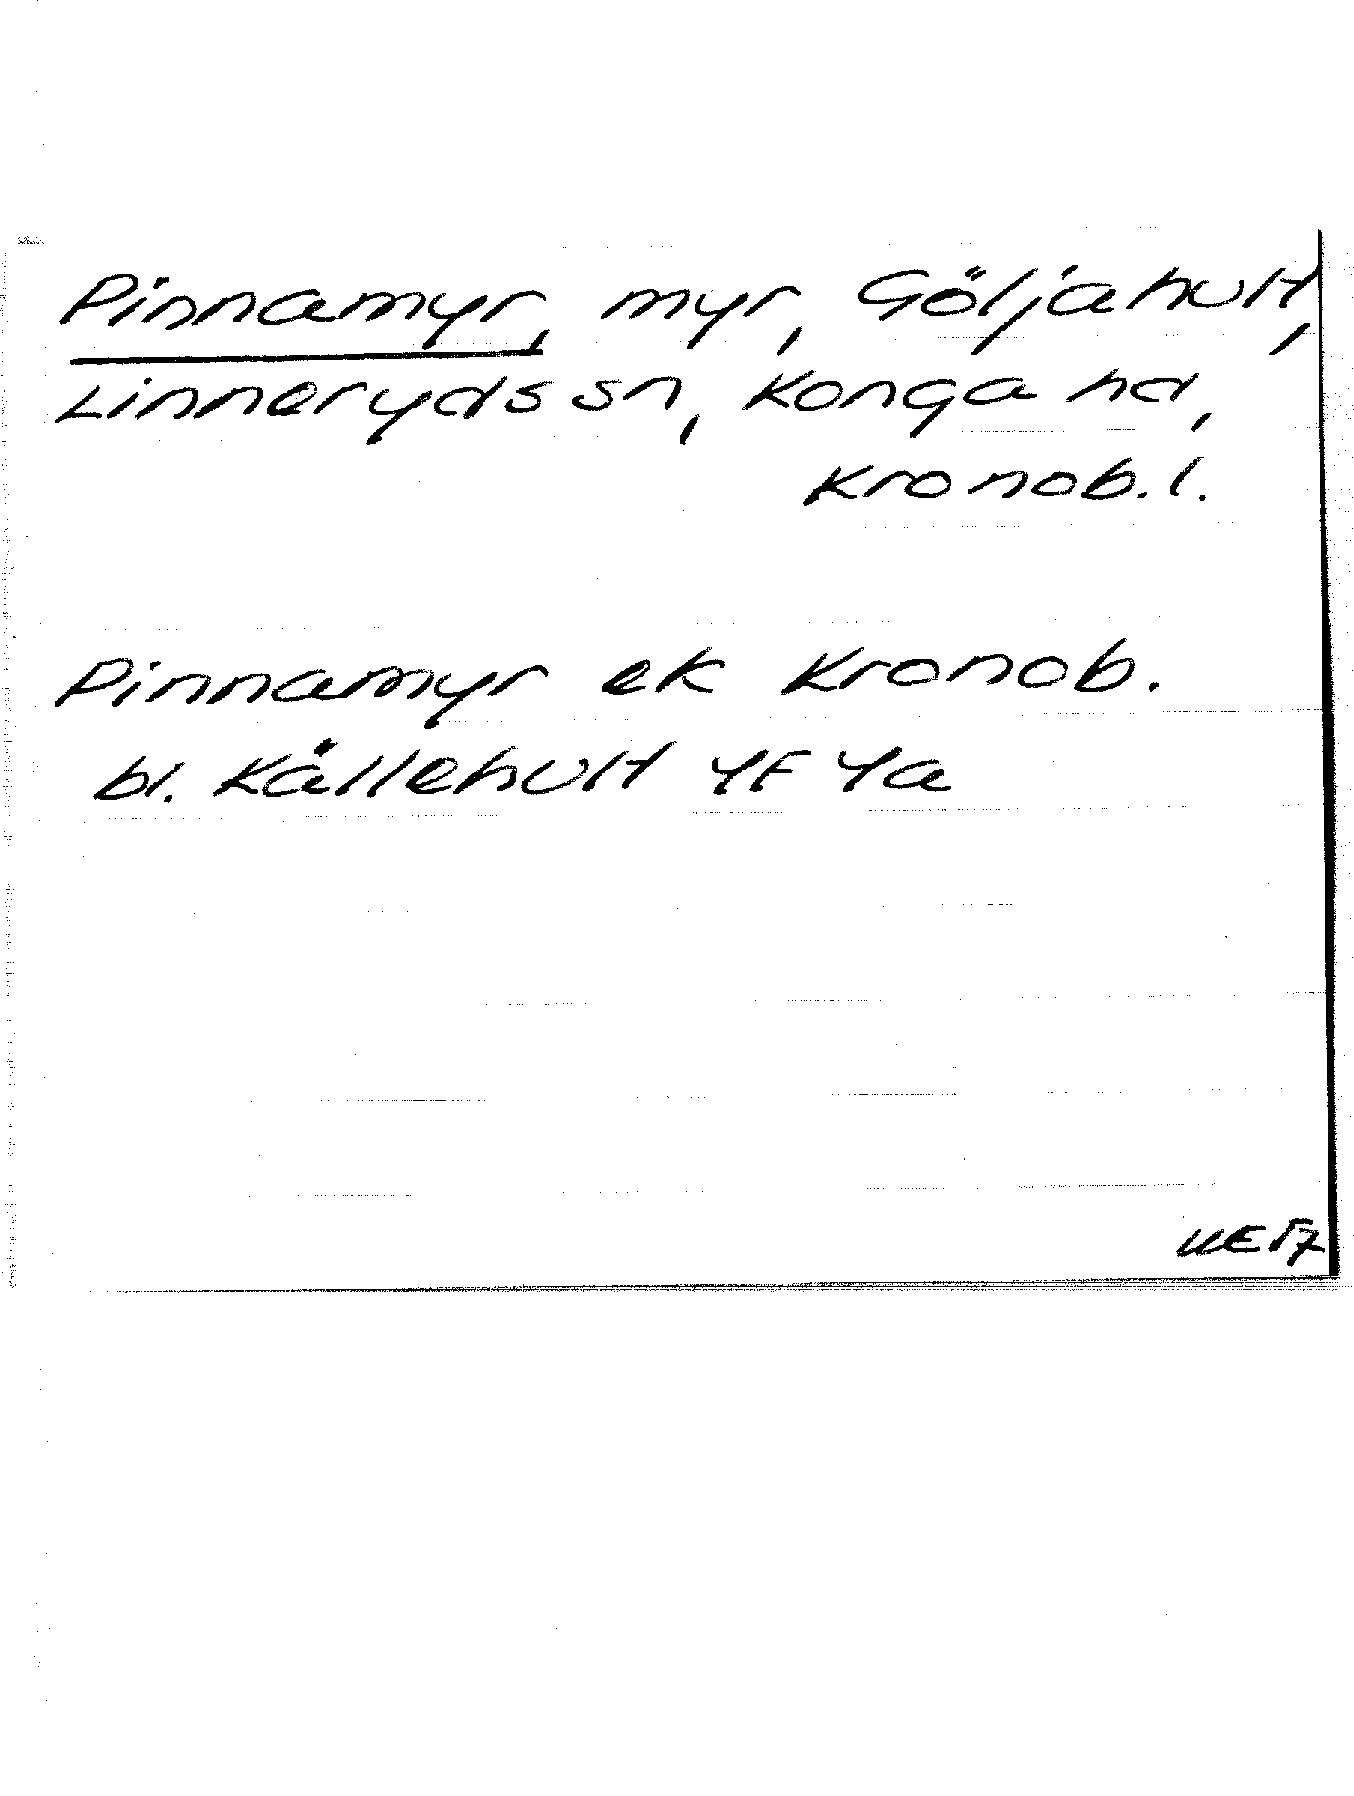 Pinnamyr, myr, Göljahult,
Linneryds sn, Konga hd,
Kronob. l.
Pinnamyr ek Kronob.
bl. Kållehult 4F 4a